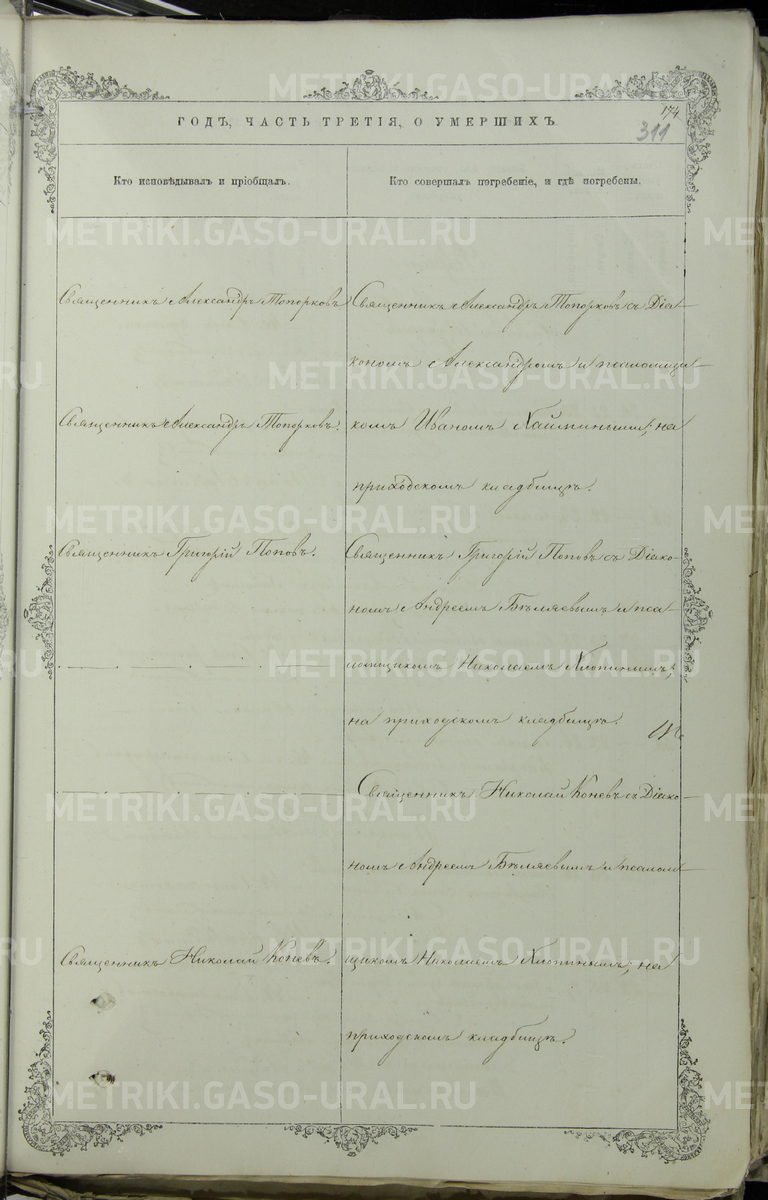 174
311
ГОДЪ, ЧАСТЬ ТРЕТІЯ, О УМЕРШИХЪ
Кто исповѣдывалъ и пріобщалъ.
Кто совершалъ погребеніе, и гдѣ погребены.
Священникъ Александръ Топорковъ
Священникъ Александръ Топорковъ.
Священникъ Григорій Поповъ.
Священникъ Николай Коневъ.
Священникъ Александръ Топорковъ съ Діа-
кономъ Александромъ и псаломщи-
комъ Иваномъ; на
приходскомъ кладбищѣ.
Священникъ Григорій Поповъ съ Діако-
номъ Андреемъ Бѣляевымъ и пса
ломщикомъ Николаемъ Хлопинымъ;
на приходскомъ кладбищѣ.
Священникъ Николай Коневъ съ Діако-
номъ Андреемъ Бѣляевымъ и псалом-
щикомъ Николаемъ Хлопинымъ; на
приходскомъ кладбищѣ.
METRIKI.GASO-URAL.RU